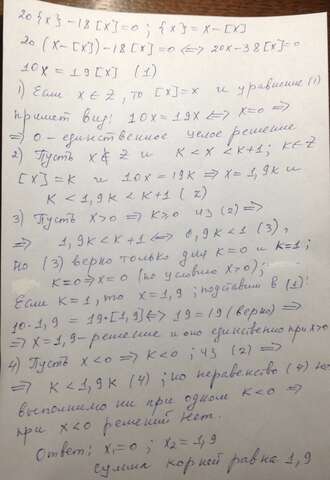 20{x}-18[x]=0; {x}=x-[x]
20(x-[x])-18[x]=0 <=> 20x-38[x]=0
10x=19[x] (1)
1) Если x∈Z, то [x]=x и уравнение (1)
примет вид: 10x=19x <=> x=0 =>
=> 0 - единственное целое решение
2) Пусть x∉Z и K<x<K+1; K∈Z
[x]=K и 10x=19K => x=1,9K и
K<1,9K<K+1 (2)
3) Пусть x>0 => K≥0 из (2) =>
=> 1,9K<K+1 <=> 0,9K<1 (3),
но (3) верно только для K=0 и K=1;
K=0 => x=0 (но условию x>0);
Если K=1, то x=1,9; подставим в (1):
10·1,9=19·[1,9] <=> 19=19 (верно) =>
=> x=1,9 - решение и оно единственно при x>0
4) Пусть x<0 => K<0; из (2) =>
=> K<1,9K (4); но неравенство (4) не
выполнимо ни при одном K<0 =>
при x<0 решений нет.
Ответ: x₁=0; x₂=1,9
Сумма корней равна 1,9